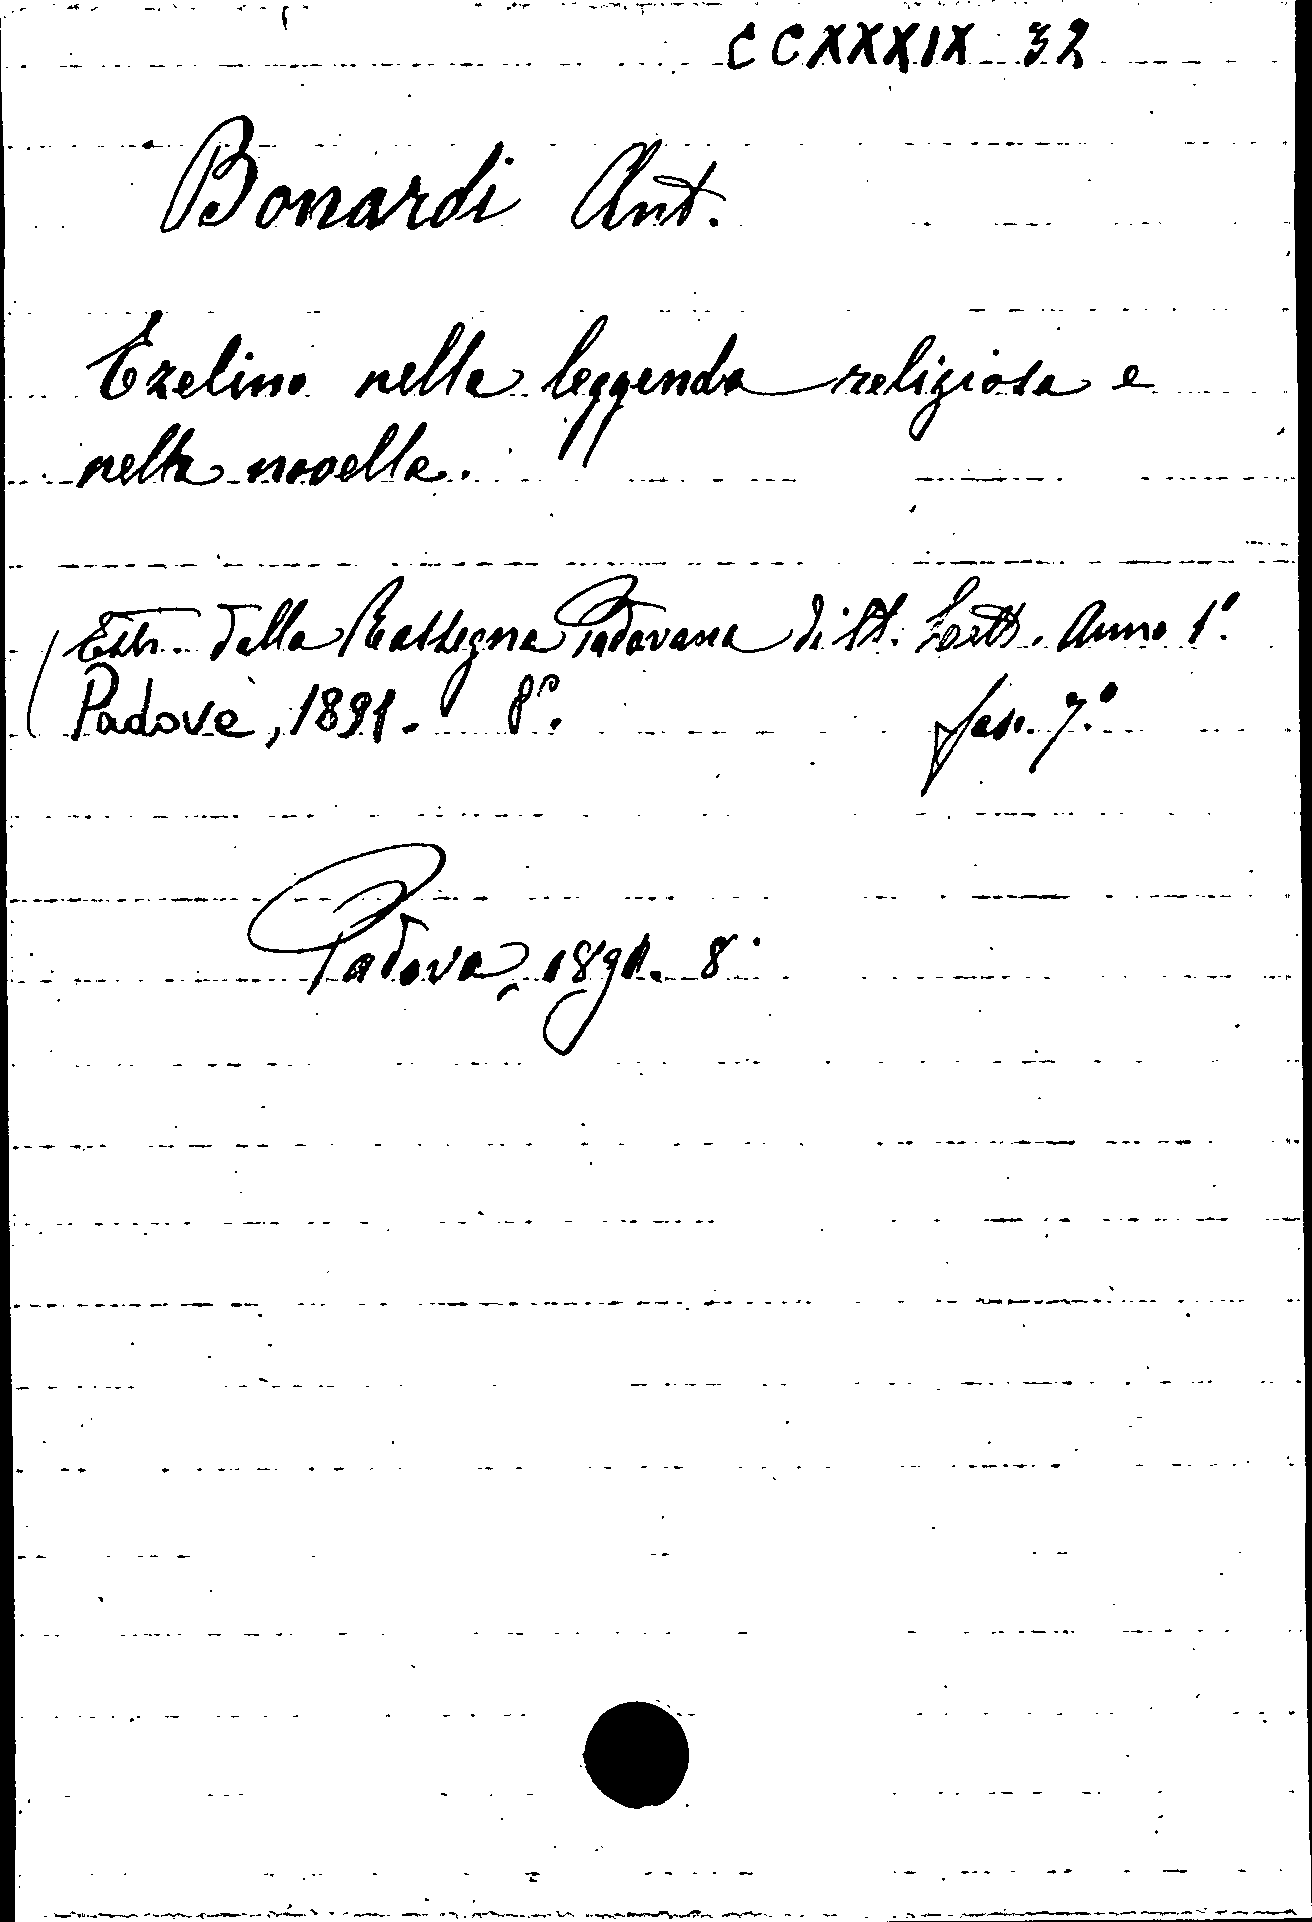 CCXXXIX 32
Bonardi Ant.
Ezelino nella leggenda religiosa e
nella novella.
(Estr. dalla Rassegna Padovana di St. Lett. Anno 1.º
Padova, 1891. 8º. fas. 7.º
Padova, 1891. 8º